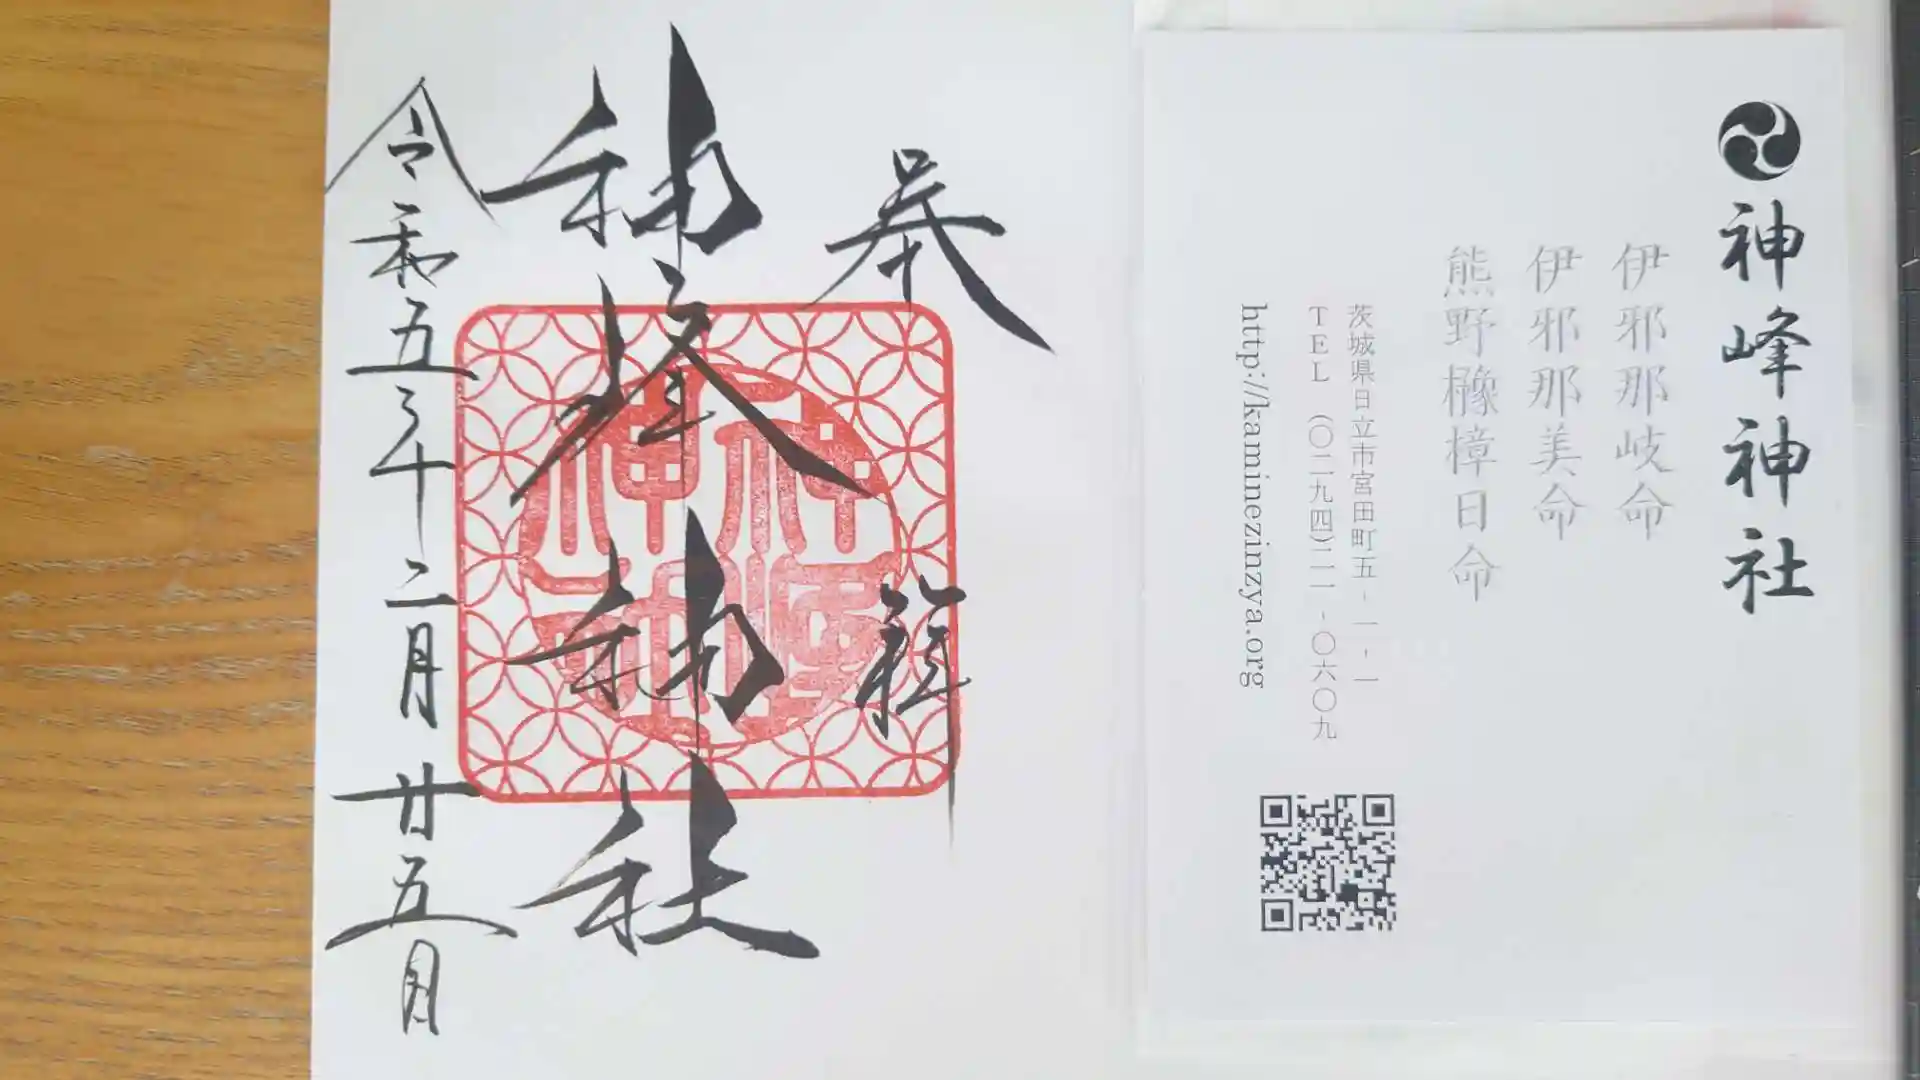 神峰神社
伊邪那岐命
伊邪那美命
熊野櫲樟日命
茨城県日立市宮田町五-一-一
TEL (〇二九四)二一-〇六〇九
http://kaminezinzya.org
奉拝
神峰神社
令和五年二月廿五日